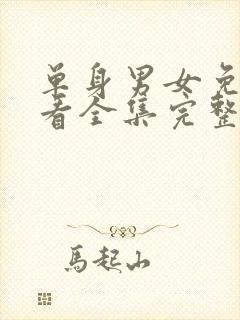 单身男女免
看全集完整
馬起山